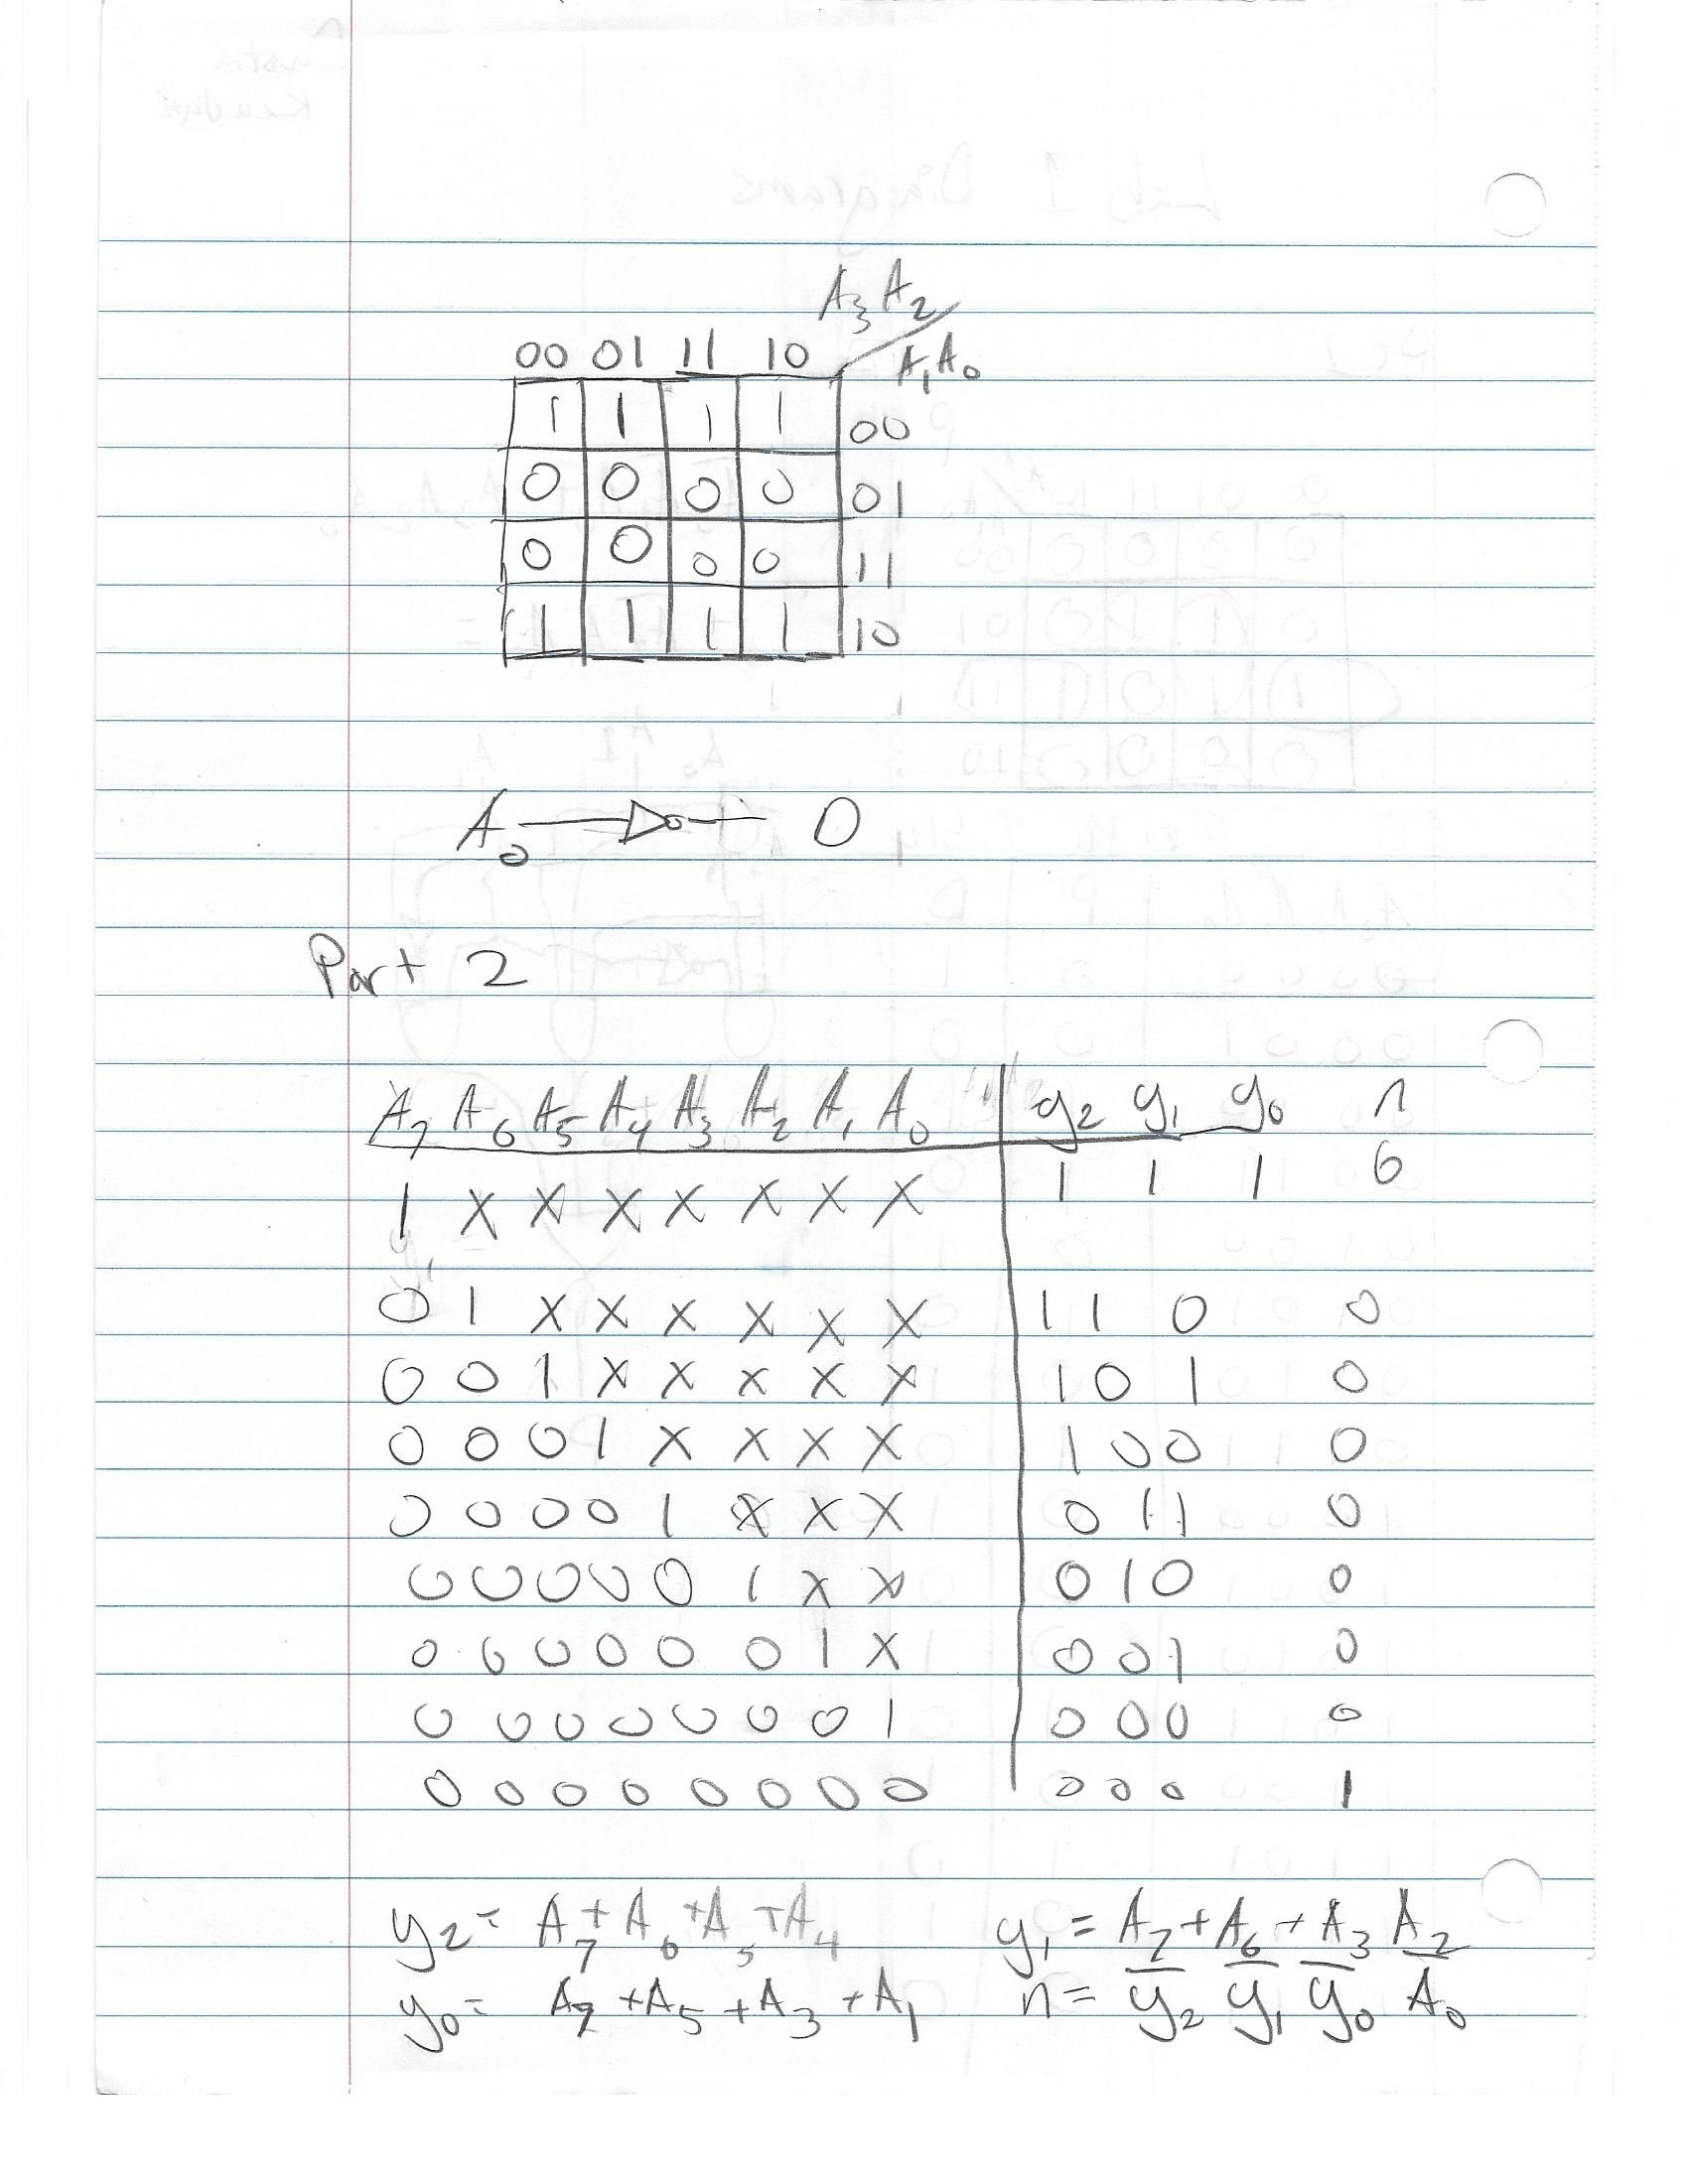 A3 A2
00 01 11 10 A1 A0
1 1 1 1 00
0 0 0 0 01
0 0 0 0 11
1 1 1 1 10
A0 D
Part 2
A7 A6 A5 A4 A3 A2 A1 A0 y2 y1 y0 n
1 X X X X X X X 1 1 1 0
0 1 X X X X X X 1 1 0 0
0 0 1 X X X X X 1 0 1 0
0 0 0 1 X X X X 1 0 0 0
0 0 0 0 1 X X X 0 1 1 0
0 0 0 0 0 1 X X 0 1 0 0
0 0 0 0 0 0 1 X 0 0 1 0
0 0 0 0 0 0 0 1 0 0 0 0
0 0 0 0 0 0 0 0 0 0 0 1
y2 = A7 + A6 + A5 + A4 y1 = A7 + A6 + A3 A2
y0 = A7 + A5 + A3 + A1 n = y̅2 y̅1 y̅0 A̅0